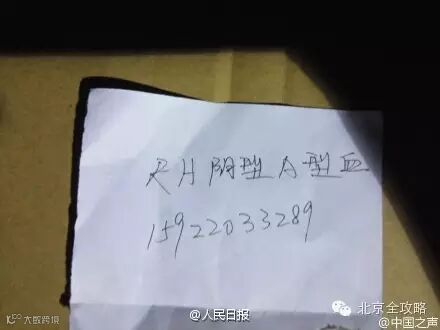 RH阴型A型血
15922033289
大数跨境
@人民日报
北京全攻略
@中国之声